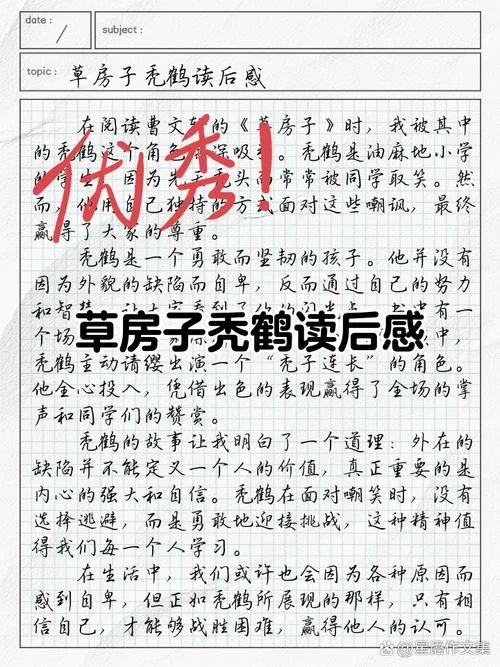 date :
/
subject :
topic : 草房子秃鹤读后感
在阅读曹文轩的《草房子》时，我被其中
的秃鹤这个角色深深吸引。秃鹤是油麻地小学
的学生，因为先天秃头而常常被同学取笑。然
而，他用自己独特的方式面对这些嘲讽，最终
赢得了大家的尊重。
优秀！
秃鹤是一个勇敢而坚韧的孩子。他并没有
因为外貌的缺陷而自卑，反而通过自己的努力
和智慧，让大家看到了他的闪光点。书中有一
个场 中，
草房子秃鹤读后感
秃鹤主动请缨出演一个“秃子连长”的角色。
他全心投入，凭借出色的表现赢得了全场的掌
声和同学们的赞赏。
秃鹤的故事让我明白了一个道理：外在的
缺陷并不能定义一个人的价值，真正重要的是
内心的强大和自信。秃鹤在面对嘲笑时，没有
选择逃避，而是勇敢地迎接挑战，这种精神值
得我们每一个人学习。
在生活中，我们或许也会因为各种原因而
感到自卑，但正如秃鹤所展现的那样，只有相
信自己，才能够战胜困难，赢得他人的认可。
@星语作文集